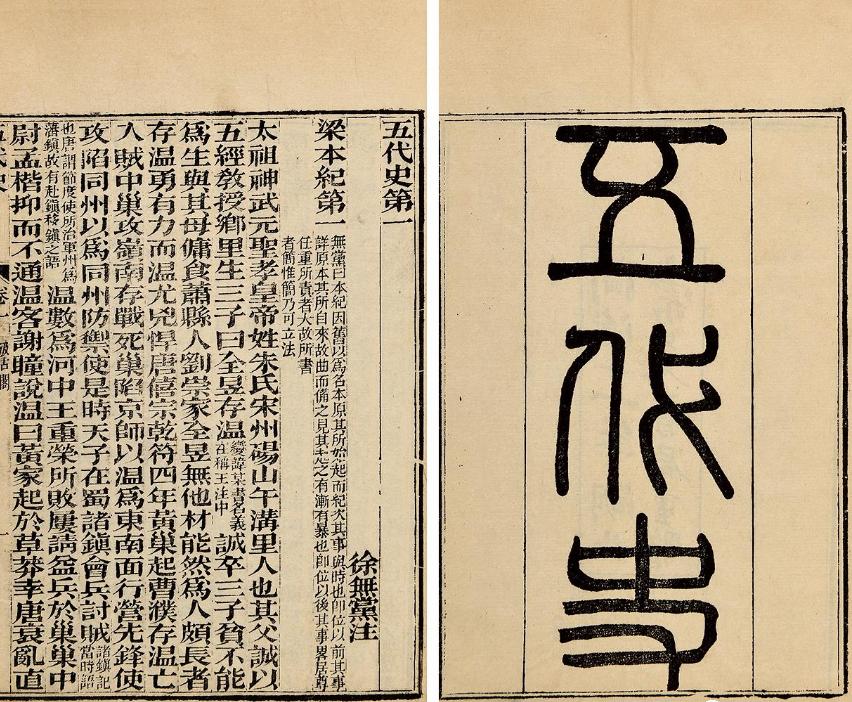 五代史
五代史第一
徐無黨注
梁本紀第一
無黨曰本紀因舊以爲名本原其所始起而紀次其事與時也卽位以前其事
詳原本其所自來故曲而備之見其起之有漸有暴也卽位以後其事畧居尊
任重所責者大故所書
者簡惟簡乃可立法
太祖神武元聖孝皇帝姓朱氏宋州碭山午溝里人也其父誠以
五經敎授鄉里生三子曰全昱存温變諱某書名義在稱王注中誠卒三子貧不能
爲生與其母傭食蕭縣人劉崇家全昱無他材能然爲人頗長者
存温勇有力而温尤兇悍唐僖宗乾符四年黃巢起曹濮存温亡
入賊中巢攻嶺南存戰死巢陷京師以温爲東南面行營先鋒使
攻陷同州以爲同州防禦使是時天子在蜀諸鎮會兵討賊諸鎮記當時語
也唐謂節度使所治軍州爲藩鎮故有赴鎮移鎮之語温數爲河中王重榮所敗屢請益兵於巢巢中
尉孟楷抑而不通温客謝瞳說温曰黃家起於草莽幸唐衰亂直